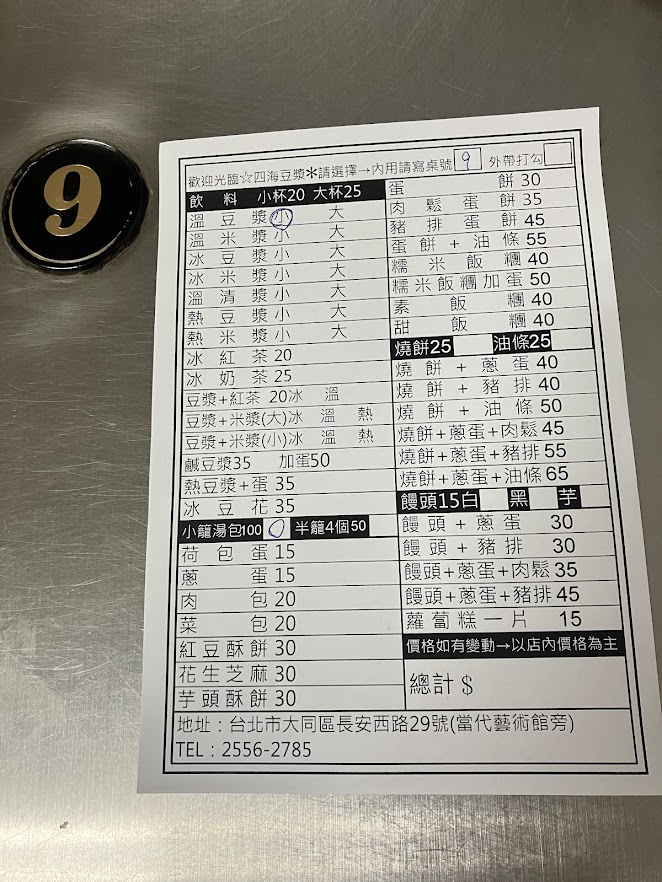 9
歡迎光臨☆四海豆漿＊請選擇→內用請寫桌號 9 外帶打勾
飲料 小杯20 大杯25
溫豆漿小 大
溫米漿小 大
冰豆漿小 大
冰米漿小 大
溫清漿小 大
熱豆漿小 大
熱米漿小 大
冰紅茶20
冰奶茶25
豆漿+紅茶 20冰 溫
豆漿+米漿(大)冰 溫 熱
豆漿+米漿(小)冰 溫 熱
鹹豆漿35 加蛋50
熱豆漿+蛋35
冰豆花35
小籠湯包100 半籠4個50
荷包蛋15
蔥蛋15
肉包20
菜包20
紅豆酥餅30
花生芝麻30
芋頭酥餅30
蛋餅30
肉鬆蛋餅35
豬排蛋餅45
蛋餅+油條55
糯米飯糰40
糯米飯糰加蛋50
素飯糰40
甜飯糰40
燒餅25 油條25
燒餅+蔥蛋40
燒餅+豬排40
燒餅+油條50
燒餅+蔥蛋+肉鬆45
燒餅+蔥蛋+豬排55
燒餅+蔥蛋+油條65
饅頭15白 黑 芋
饅頭+蔥蛋 30
饅頭+豬排 30
饅頭+蔥蛋+肉鬆35
饅頭+蔥蛋+豬排45
蘿蔔糕一片 15
價格如有變動→以店內價格為主
總計 $
地址：台北市大同區長安西路29號(當代藝術館旁)
TEL：2556-2785